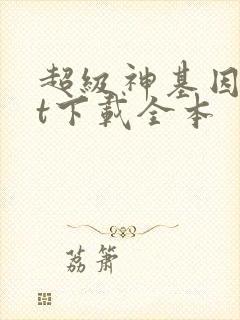 超級神基因
t下載全本
荔簫